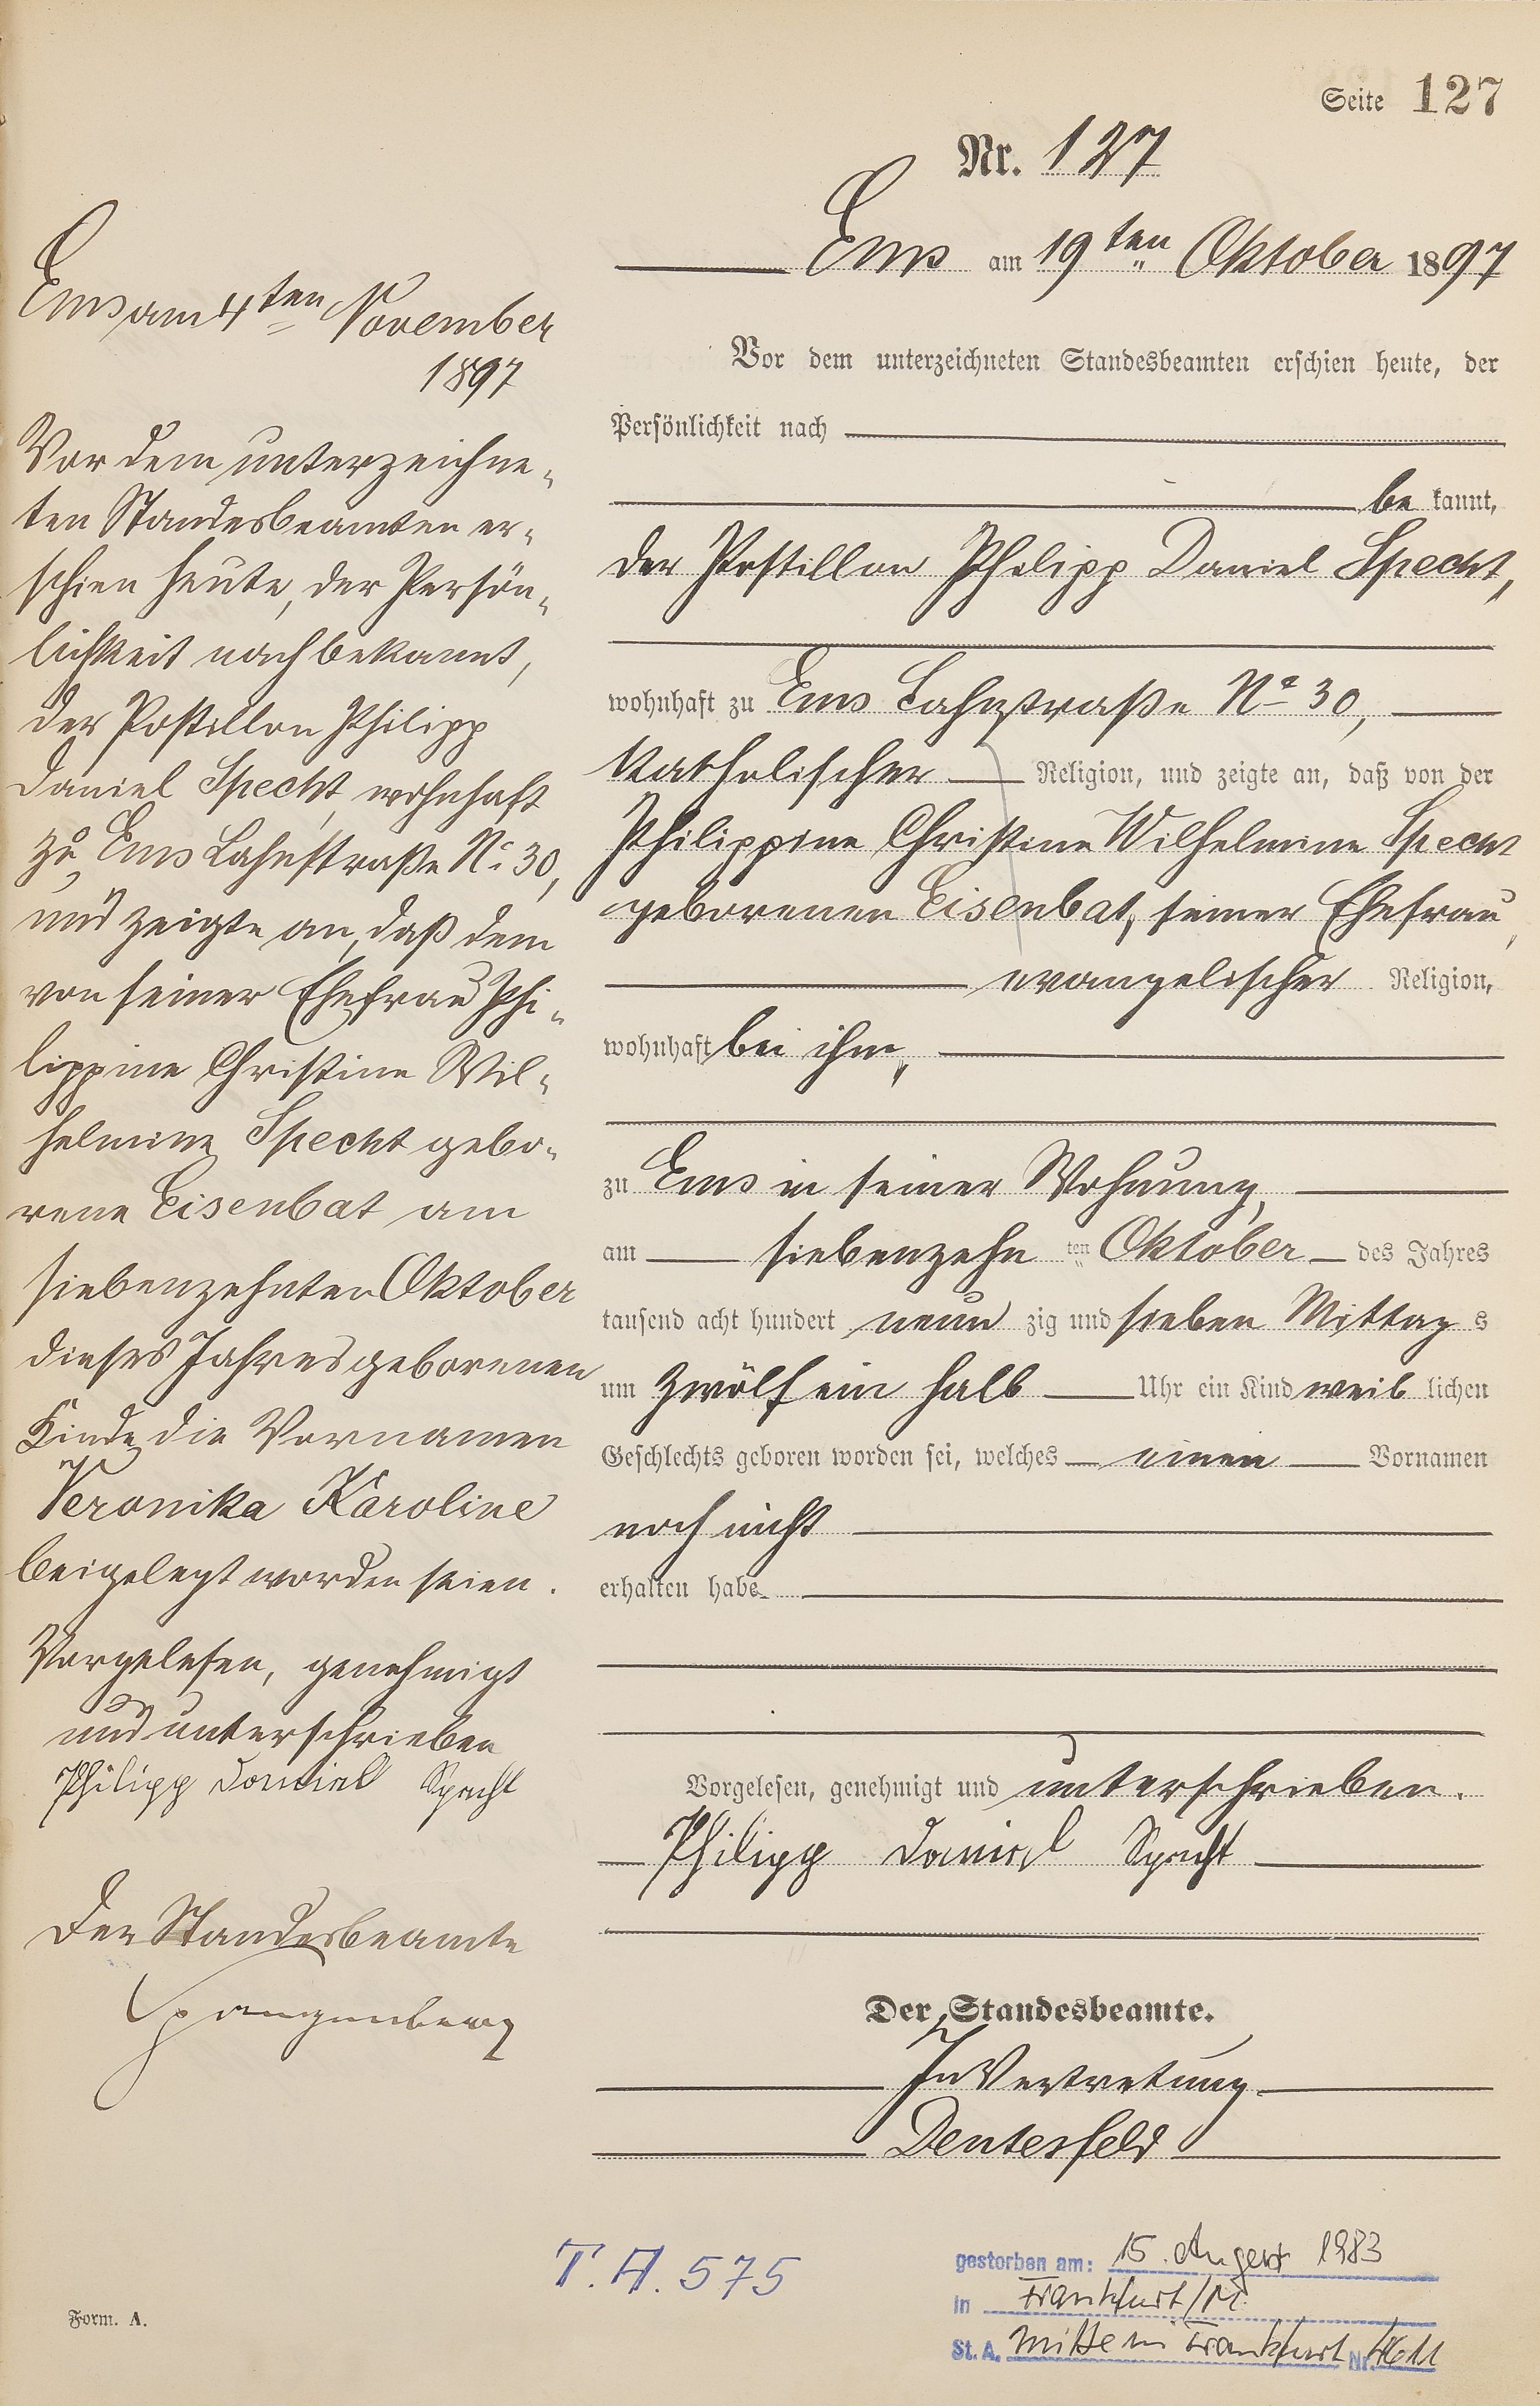 Seite 127
Nr. 127
Ems am 19ten Oktober 1897
Vor dem unterzeichneten Standesbeamten erschien heute, der
Persönlichkeit nach
be kannt,
der Postillon Philipp Daniel Specht,
wohnhaft zu Ems Lahnstraße No 30,
katholischer Religion, und zeigte an, daß von der
Philippine Christine Wilhelmine Specht
geborenen Eisenbat, seiner Ehefrau,
evangelischer Religion,
wohnhaft bei ihm,
zu Ems in seiner Wohnung,
am siebenzehn ten Oktober des Jahres
tausend acht hundert neun zig und sieben Mittag s
um zwölf ein halb Uhr ein Kind weib lichen
Geschlechts geboren worden sei, welches einen Vornamen
noch nicht
erhalten habe
Vorgelesen, genehmigt und unterschrieben.
Philipp Daniel Specht
Der Standesbeamte.
In Vertretung
Dentesfeld
Ems am 4ten November
1897
Vor dem unterzeichne-
ten Standesbeamten er-
schien heute, der Persön-
lichkeit nach bekannt,
der Postillon Philipp
Daniel Specht, wohnhaft
zu Ems Lahnstraße No 30,
und zeigte an, daß dem
von seiner Ehefrau Phi-
lippine Christine Wil-
helmine Specht gebo-
rene Eisenbat am
siebenzehnten Oktober
dieses Jahres geborenen
Kinde die Vornamen
Veronika Karoline
beigelegt worden seien.
Vorgelesen, genehmigt
und unterschrieben
Philipp Daniel Specht
Der Standesbeamte
Spangenberg
T. A. 575
gestorben am: 15. August 1983
in Frankfurt/M.
St. A. Mitte in Frankfurt Nr. 4611
Form. A.